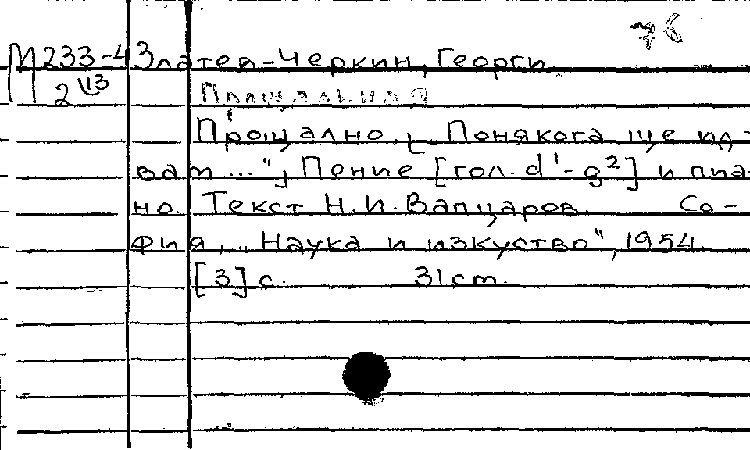 76
М 233-4 Златев-Черкин, Георги
2 VI3 Прощальная
Прощално. [„Понякога ще ид-
вам ..."] Пение [гол. d'-g²] и пиа-
но. Текст Н.И.Вапцаров. Со-
фия, „Наука и изкуство", 1954.
[3] с. 31 cm.